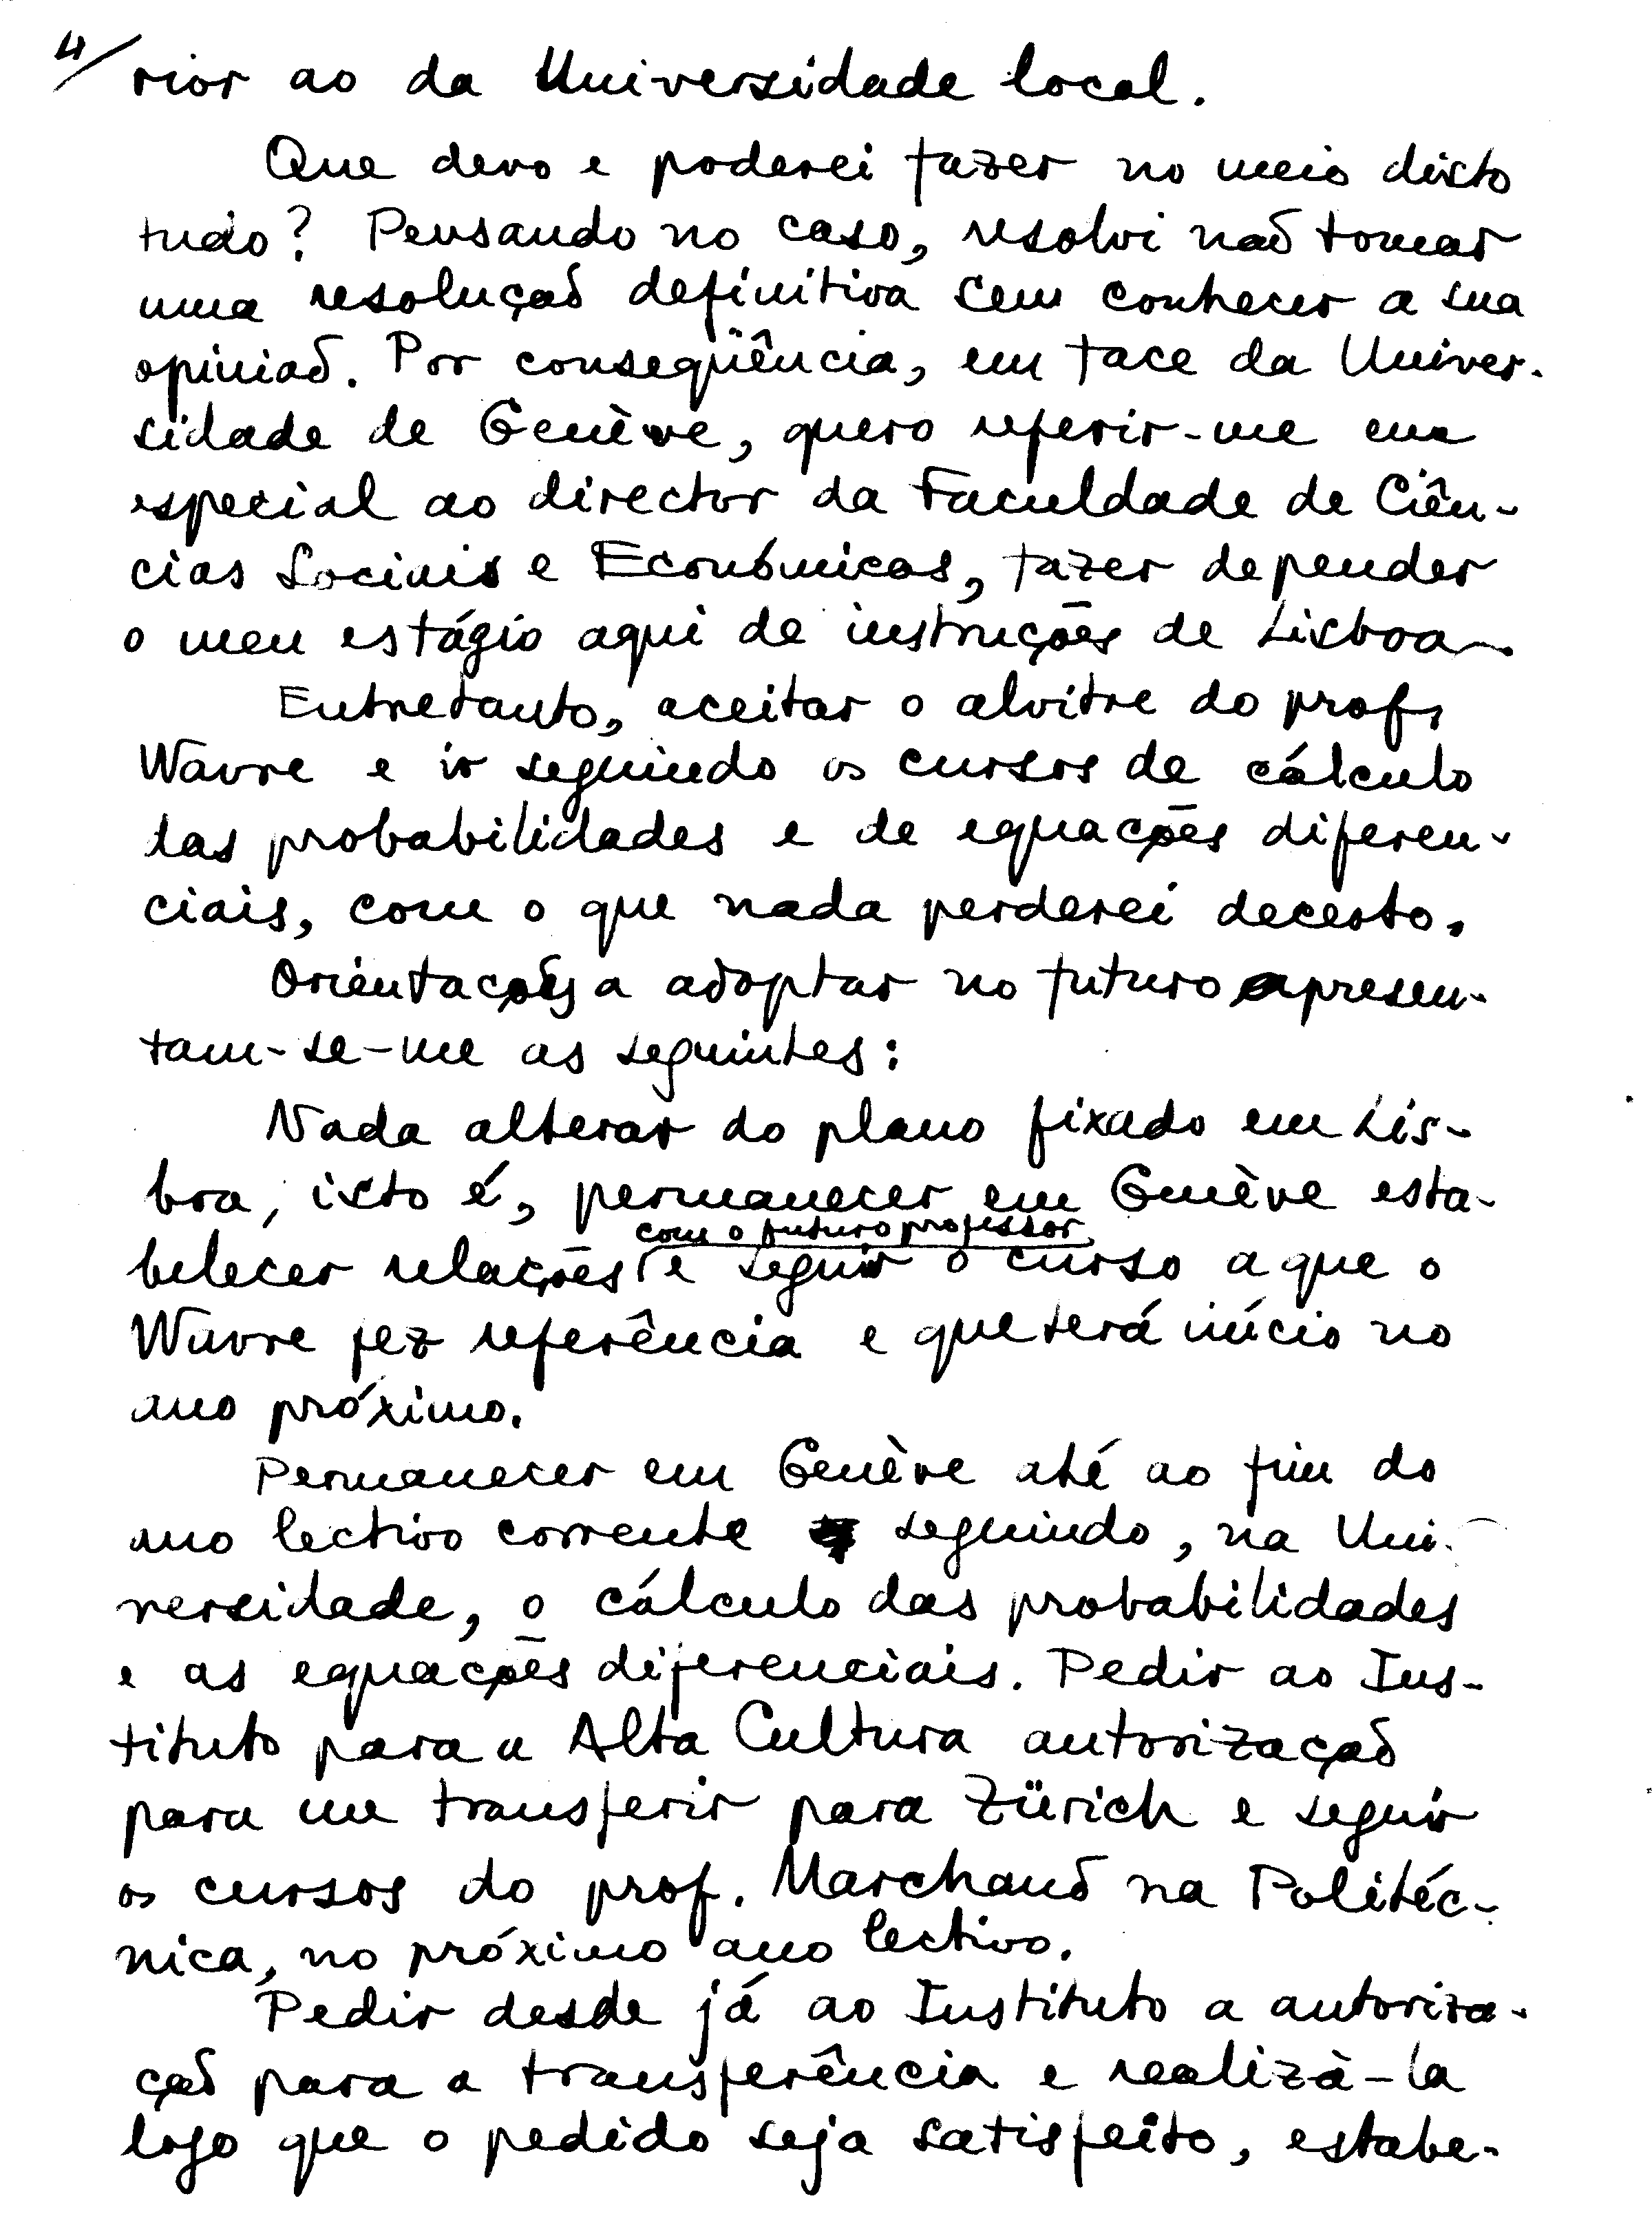 4/ rior ao da Universidade local.
Que devo e poderei fazer no meio disto
tudo? Pensando no caso, resolvi não tomar
uma resolução definitiva sem conhecer a sua
opinião. Por conseqüência, em face da Univer-
sidade de Genève, quero referir-me em
especial ao director da Faculdade de Ciên-
cias Sociais e Económicas, fazer depender
o meu estágio aqui de instruções de Lisboa.
Entretanto, aceitar o alvitre do prof.
Wavre e ir seguindo os cursos de cálculo
das probabilidades e de equações diferen-
ciais, com o que nada perderei decerto.
Orientações a adoptar no futuro apresen-
tam-se-me as seguintes:
Nada alterar do plano fixado em Lis-
boa, isto é, permanecer em Genève esta-
com o futuro professor
belecer relações e seguir o curso a que o
Wavre fez referência e que terá início no
ano próximo.
Permanecer em Genève até ao fim do
ano lectivo corrente seguindo, na Uni-
versidade, o cálculo das probabilidades
e as equações diferenciais. Pedir ao Ins-
tituto para a Alta Cultura autorização
para me transferir para Zürich e seguir
os cursos do prof. Marchand na Politéc-
nica, no próximo ano lectivo.
Pedir desde já ao Instituto a autoriza-
ção para a transferência e realizà-la
logo que o pedido seja satisfeito, estabe-